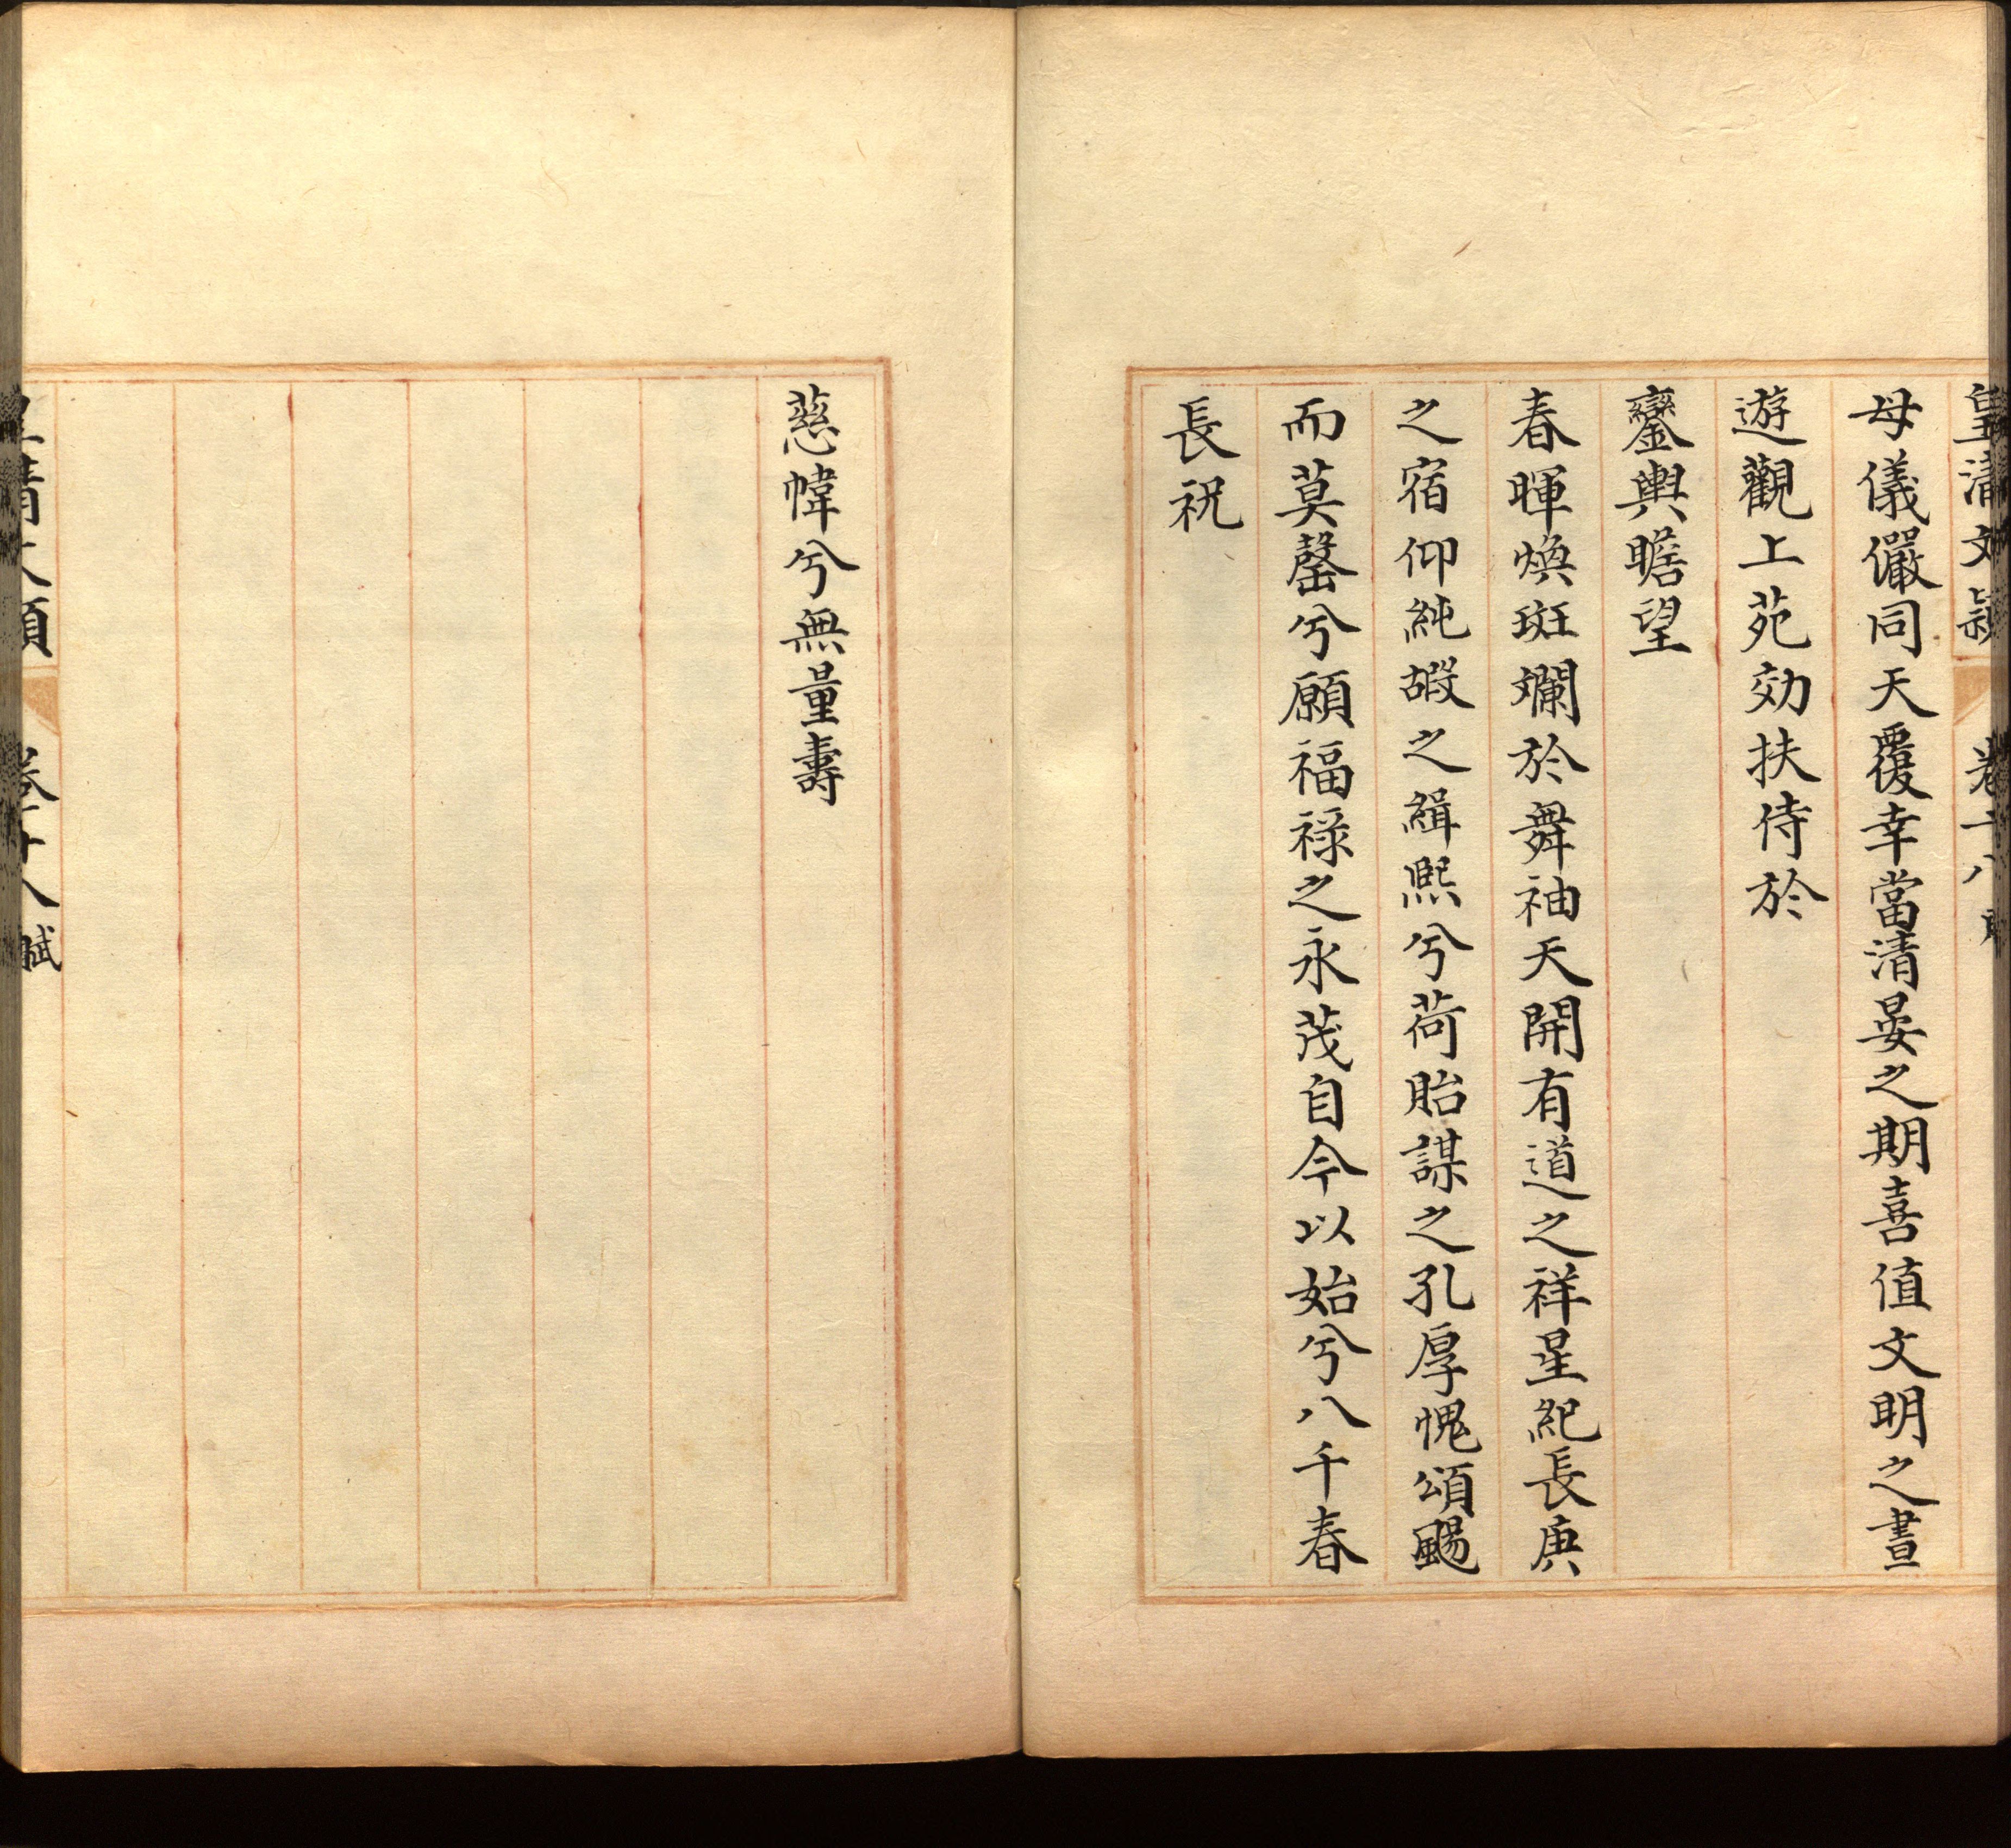 皇清文穎 卷十八
母儀儼同天覆幸當清晏之期喜值文明之晝
遊觀上苑効扶侍於
鑾輿瞻望
春暉煥斑斕於舞袖天開有道之祥星紀長庚
之宿仰純嘏之緝熙兮荷貽謀之孔厚愧頌颺
而莫罄兮願福祿之永茂自今以始兮八千春
長祝
慈幃兮無量壽
皇清文穎 卷十八 賦